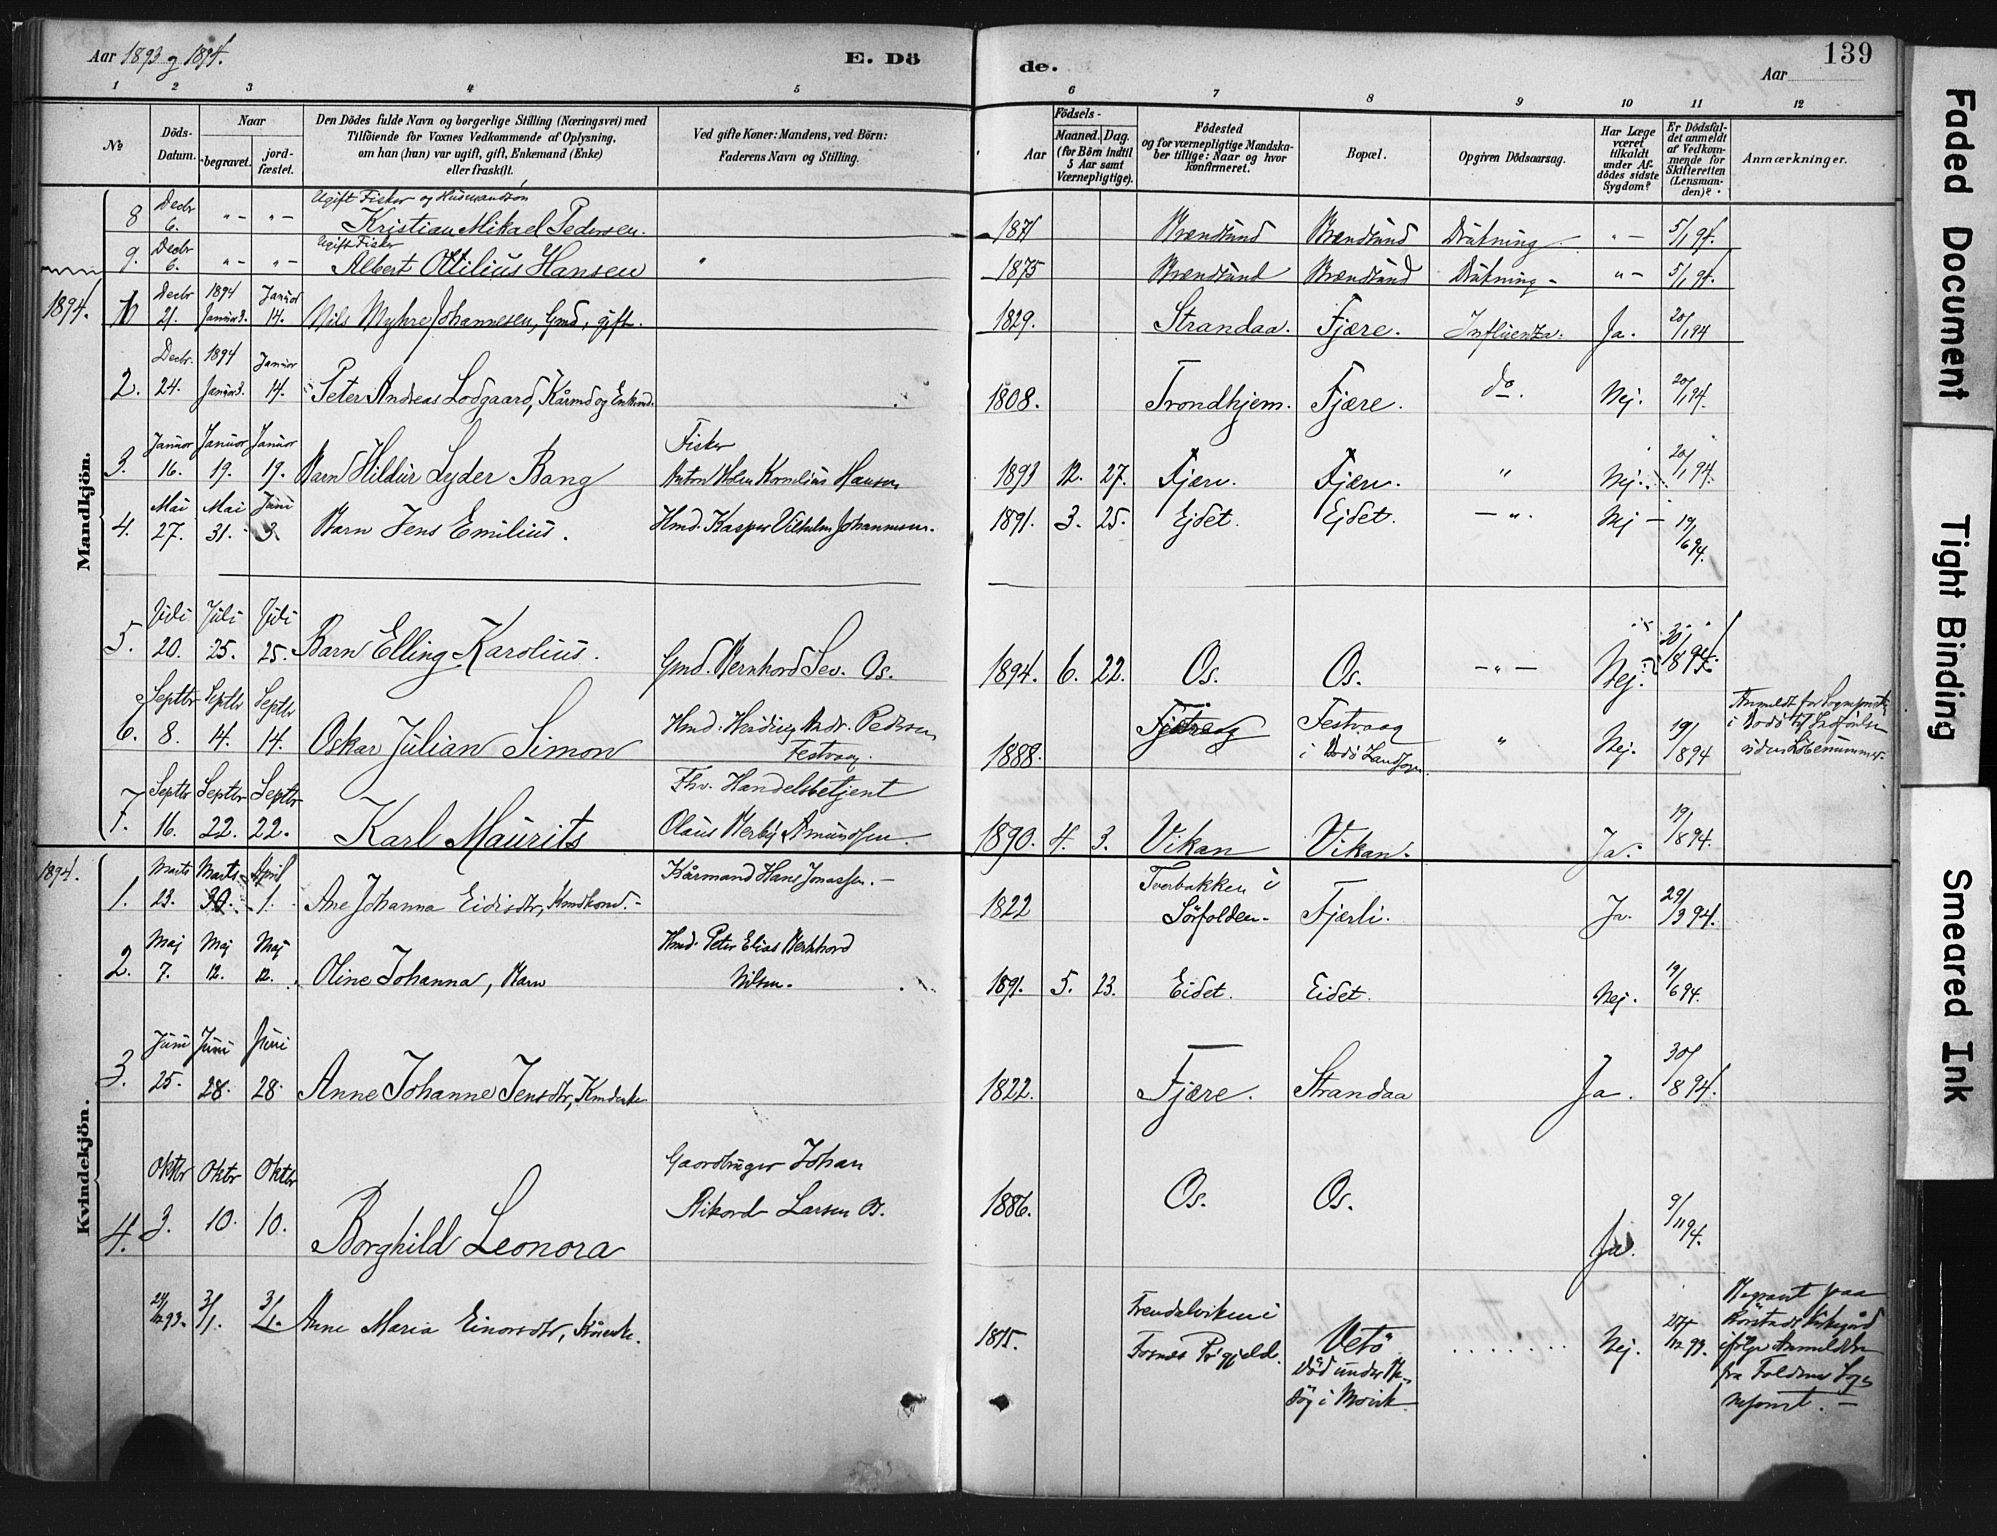 Aar 1893 og 1894.
E. Dö
de.
Aar
139
1 2 3 4 5 6 7 8 9 10 11 12
No
Döds-
Datum.
Naar
begravet.
jord-
fæstet.
Den Dödes fulde Navn og borgerlige Stilling (Næringsvei) med
Tilföiende for Voxnes Vedkommende af Oplysning,
om han (hun) var ugift, gift, Enkemand (Enke)
eller fraskilt.
Ved gifte Koner: Mandens, ved Börn:
Faderens Navn og Stilling.
Födsels-
Aar
Maaned. Dag.
(for Börn indtil
5 Aar samt
Værnepligtige).
Födested
og for værnepligtige Mandska-
ber tillige: Naar og hvor
konfirmeret.
Bopæl.
Opgiven Dödsaarsag.
Har Læge
været
tilkaldt
under Af-
dödes sidste
Sygdom?
Er Dödsfal-
det anmeldt
af Vedkom-
mende for
Skifteretten
(Lensman-
den)?
Anmærkninger.
Mandkjön.
8 Decbr 6. "- "- Ugift Fisker og Husmandssön
Kristian Mikael Pedersen. 1871 Brændsund Brændsund Drukning "- 5/1 94.
9. Decbr 6. "- "- Ugift Fisker
Albert Ottilius Hansen " 1875 Brændsund Brændsund Drukning - "- 5/1 94.
1894. Decbr 21. 1894 Januar 3. Januar 14. Nils Myhre Johannesen, Gmd, gift. 1829. Strandaa. Fjære. Influenza. Ja. 20/1 94
2. Decbr. 24. 1894 Januar 3. Januar 14. Peter Andreas Lodgaard, Kårmd og Enkmd. 1808. Trondhjem. Fjære. do Nej. 20/1 94.
3. Januar 16. Januar 19. Januar 19. Barn Hildur Lyder Bang Fisker
Anton Kornelius Hansen 1893 12. 27. Fjære. Fjære. " Nej. 20/1 94.
4. Mai 27. Mai 31. Juni 3. Barn Jens Emilius. Hmd. Kasper Vilhelm Johannesen. 1891. 3. 25. Ejdet. Ejdet. - " - Nej - 19/6 94.
5. Juli 20. Juli 25. Juli 25. Barn Elling Karolius. Gmd. Bernhard Sev. Os. 1894. 6. 22. Os. Os. - " - Nej. 30/8 94.
6. Septbr 8. Septbr 14. Septbr 14. Oskar Julian Simon Hmd. Andr. Pedersen
Festvaag. 1888. Festvaag
i Bodö Landsogn. " Nej. 19/ 1894 Anmeldt for Sogneprest
i Bodö
uden Löbenummer.
7. Septbr 16. Septbr 22. Septbr 22. Karl Maurits Fhv. Handelsbetjent
Olaus Amundsen. 1890. 4. 3. Vikan Vikan. Ja. 19/ 1894.
Kvindekjön.
1894. 1. Marts 23. Marts 30. April 1. Ane Johanna Eidisdtr, Kmdkone. - Kårmand Hans Jonassen. - 1822 Tverbakken i
Sörfolden - Fjærli. Ja. 29/3 94.
2. Maj 7. Maj 12. Maj 12. Oline Johanna, Barn Hmd. Peter Elias Bernhard
Nilsen. 1891. 5. 23. Eidet. Eidet. Nej. 19/6 94.
3. Juni 25. Juni 28. Juni 28. Anne Johanne Jensdtr, Kmdenke 1822. Fjære. Strandaa Ja. 30/8 94.
4. Oktbr 3. Oktbr 10. Oktbr 10. Borghild Leonora Gaardbruger Johan
Rikard Larsen Os. 1886. Os. Os. Ja. 9/11 94.
24/12 93. 3/1. 3/1. Anne Maria Einarsdtr, Kårenke. 1815. i
Fosnes Prgjeld. Vetö
Död under Be-
sög i Mörvik Nej. 27/12 93. Begravt paa
Rörstad Kirkegård
ifölge Anmeldelse
fra Foldens Sog-
neprest. -
Faded Document
Tight Binding
Smeared Ink